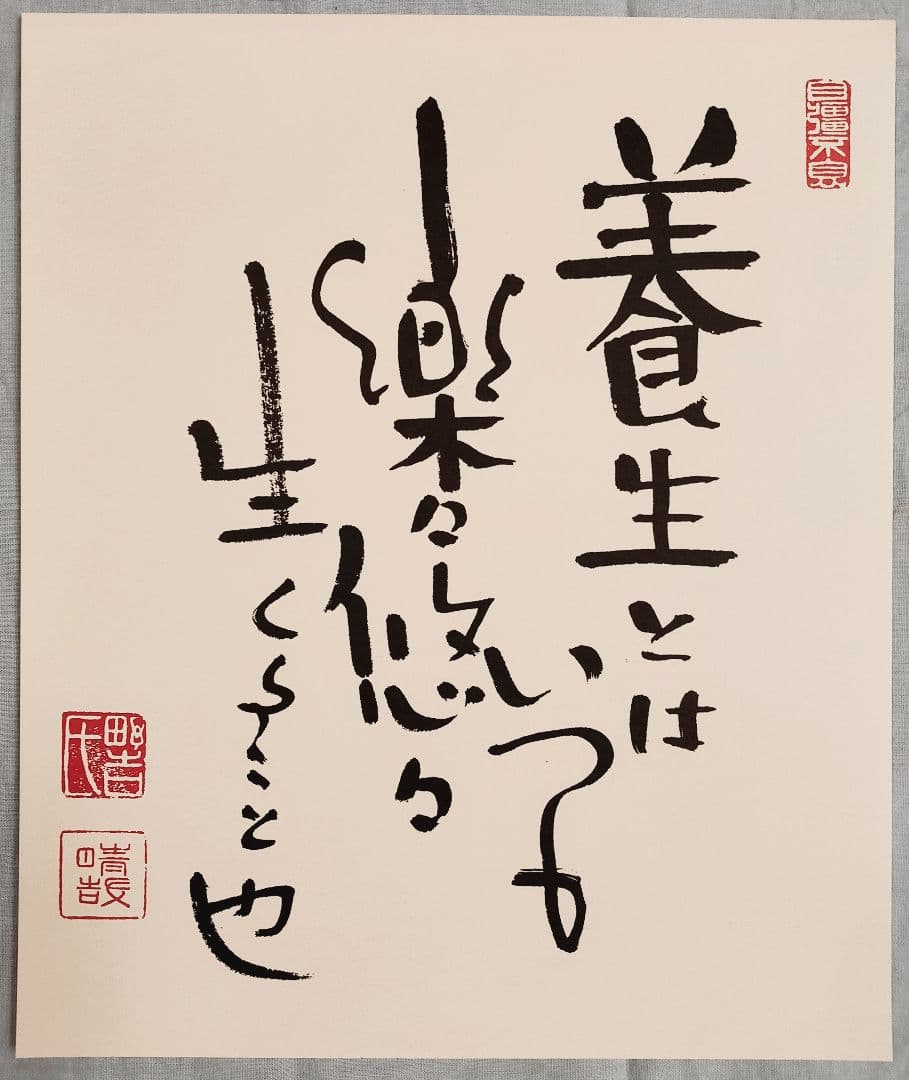 自彊不息
養生とは
いつも
樂々悠々
生くること也